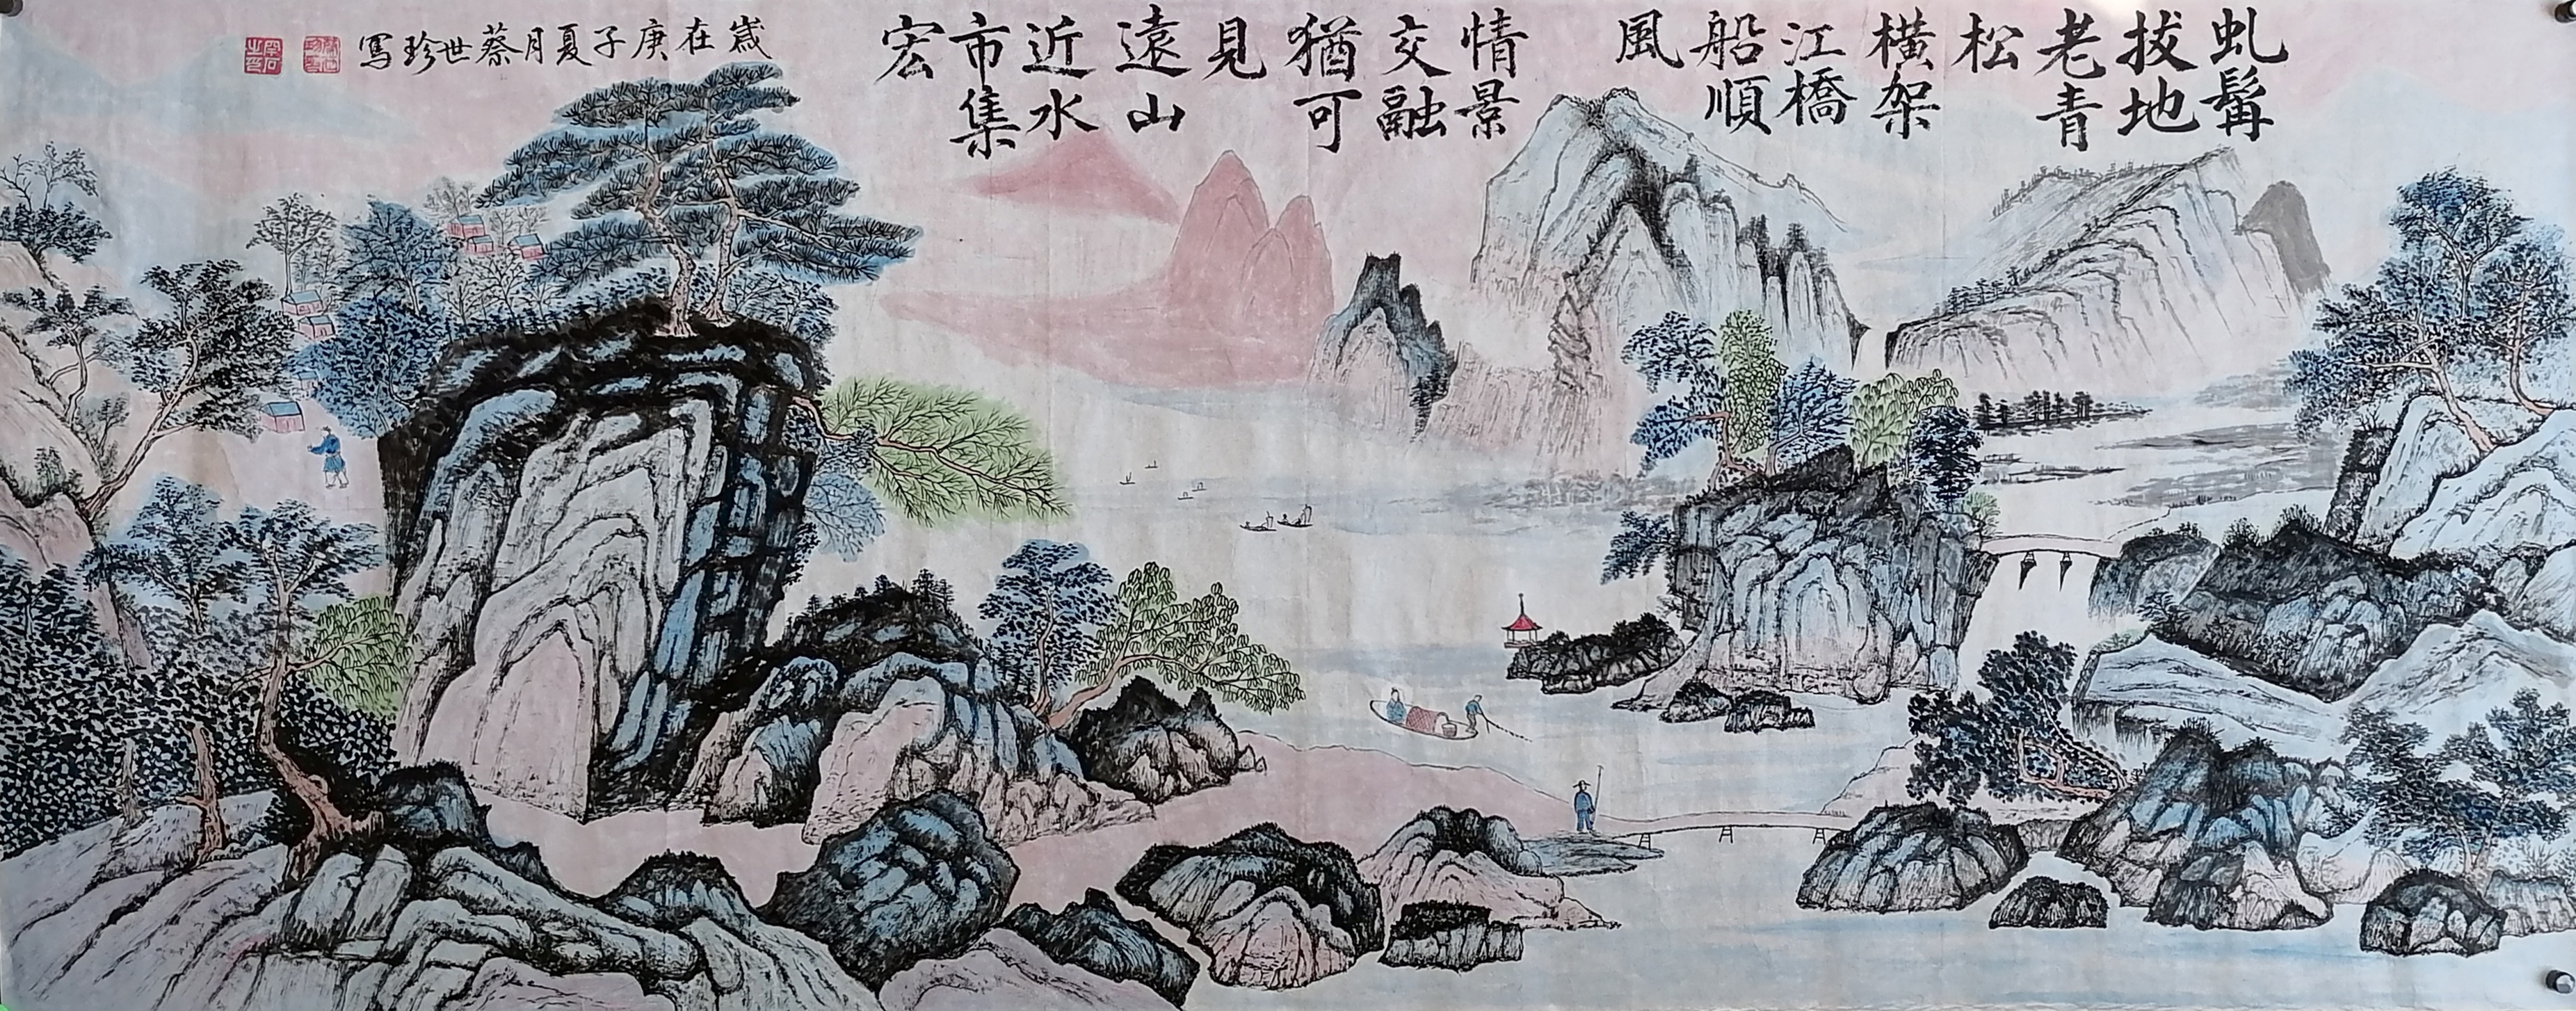 虬髯
拔地
老青
松
橫架
江橋
船順
風
情景
交融
猶可
見
遠山
近水
市集
宏
歲在庚子夏月蔡世珍寫